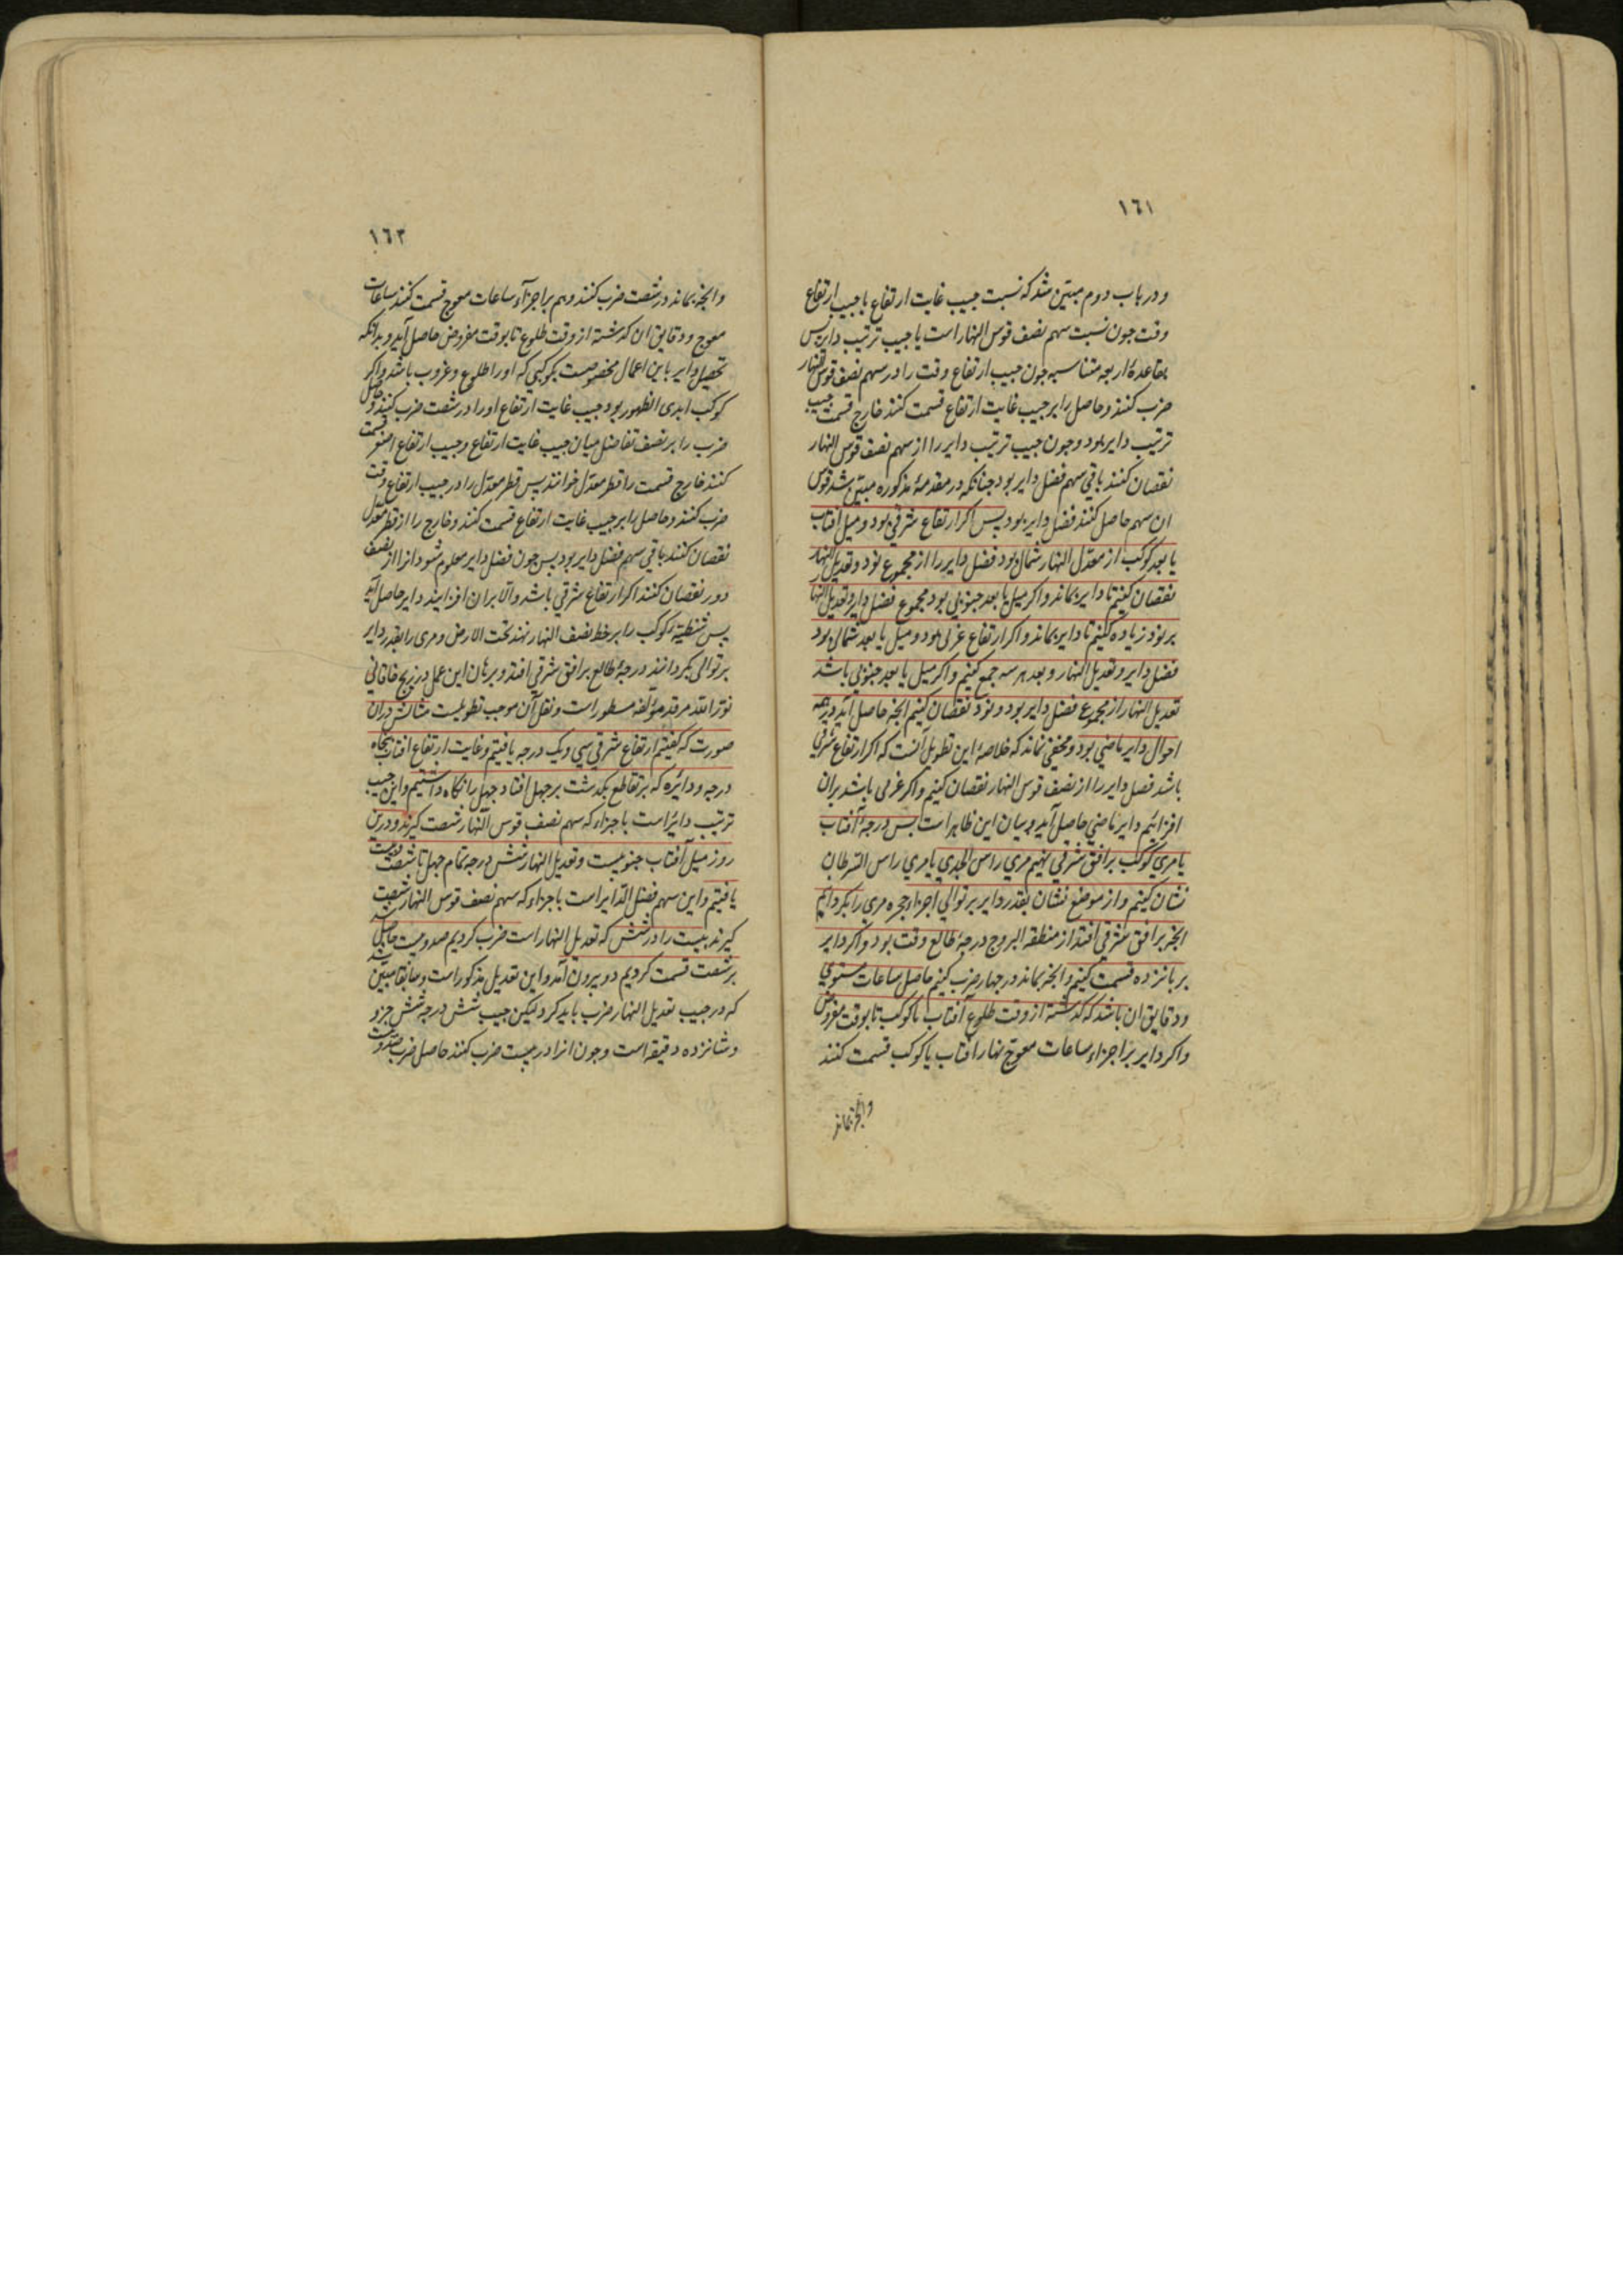 ١٦١
ودر باب دوم مبین شد که نسبت جیب غایت ارتفاع با جیب ارتفاع
وقت چون نسبت سهم نصف قوس النهار است با جیب ترتیب دایر پس
بقاعدهٔ اربعه متناسبه چون جیب ارتفاع وقت را در سهم نصف قوس النهار
ضرب کنند و حاصل را بر جیب غایت ارتفاع قسمت کنند خارج قسمت جیب
ترتیب دایر بود و چون جیب ترتیب دایر را از سهم نصف قوس النهار
نقصان کنند باقی سهم فضل دایر بود چنانکه در مقدمهٔ مذکوره مبین شد قوس
ان سهم حاصل کنند فضل دایر بود پس اکر ارتفاع شرقی بود و میل افتاب
یا بعد کوکب از معدل النهار شمالی بود فضل دایر را از مجموع نود و تعدیل النهار
نقصان کنیم تا دایر بماند و اکر میل یا بعد جنوبی بود مجموع فضل دایر و تعدیل النهار
بر نود زیاده کنیم تا دایر بماند و اکر ارتفاع غربی بود و میل یا بعد شمالی بود
فضل دایر و تعدیل النهار و بعد هر سه جمع کنیم و اکر میل یا بعد جنوبی باشد
تعدیل النهار از مجموع فضل دایر بود و نود نقصان کنیم انچه حاصل آید در همه
احوال دایر ماضی بود و مخفی نماند که خلاصهٔ این تطویل آنست که اکر ارتفاع شرقی
باشد فضل دایر را از نصف قوس النهار نقصان کنیم و اکر غربی باشد بران
افزائیم دایر ماضی حاصل آید و بیان این ظاهر است پس درجهٔ آفتاب
یا مری کوکب بر افق شرقی نهیم مری راس الجدی یا مری راس السرطان
نشان کنیم و از موضع نشان بقدر دایر بر توالی اجزاء حجره مری را بکردانیم
انچه بر افق شرقی افتد از منطقه البروج درجهٔ طالع وقت بود و اکر دایر
بر پانزده قسمت کنیم و انچه بماند در چهار ضرب کنیم حاصل ساعات مستوی
و دقایق ان باشد که کذشته از وقت طلوع آفتاب یا کوکب تا بوقت مفروض
و اکر دایر بر اجزاء ساعات معوج نهار افتاب یا کوکب قسمت کنند
وانچه بماند
١٦٢
وانچه بماند در شصت ضرب کنند و هم بر اجزآء ساعات معوج قسمت کنند ساعات
معوج و دقایق ان کذشته از وقت طلوع تا بوقت مفروض حاصل آید و بدانکه
تحصیل دایر باین اعمال مخصوصست بکوکبی که او را طلوع و غروب باشد و اکر
کوکب ابدی الظهور بود جیب غایت ارتفاع او را در شصت ضرب کنند و حاصل
ضرب را بر نصف تفاضل میان جیب غایت ارتفاع و جیب ارتفاع اصغر قسمت
کنند خارج قسمت را قطر معدل خوانند پس قطر معدل را در جیب ارتفاع وقت
ضرب کنند و حاصل را بر جیب غایت ارتفاع قسمت کنند و خارج را از قطر معدل
نقصان کنند باقی سهم فضل دایر بود پس چون فضل دایر معلوم شود انرا از نصف
دور نقصان کنند اکر ارتفاع شرقی باشد و الا بران افزایند دایر حاصل آید
پس شظیهٔ کوکب را بر خط نصف النهار نهند تحت الارض و مری را بقدر دایر
بر توالی بکردانند درجهٔ طالع بر افق شرقی افتد و برهان این عمل در زیج خاقانی
نور الله مرقد مؤلفه مسطور است و نقل آن موجب تطویلست مثالش دران
صورت که کفتیم ارتفاع شرقی سی و یک درجه یافتیم و غایت ارتفاع افتاب پنجاه
درجه و دائره که بر تقاطع بکذشت بر چهل افتاد چهل را نکاه داشتیم و این جیب
ترتیب دائر است باجزاء که سهم نصف قوس النهار شصت کیرند و درین
روز میل آفتاب جنوبیست و تعدیل النهار شش درجه تمام چهل تا شصت بیست
یافتیم و این سهم فضل الدایر است باجزاء که سهم نصف قوس النهار شصت
کیرند بیست را در شش که تعدیل النهار است ضرب کردیم صد و بیست حاصل شد
بر شصت قسمت کردیم دو بیرون آمد و این تعدیل مذکور است و سابقا مبین شد
که در جیب تعدیل النهار ضرب باید کرد لیکن جیب شش درجه شش جزو
و شانزده دقیقه است و چون انرا در بیست ضرب کنند حاصل ضرب صد و بیست